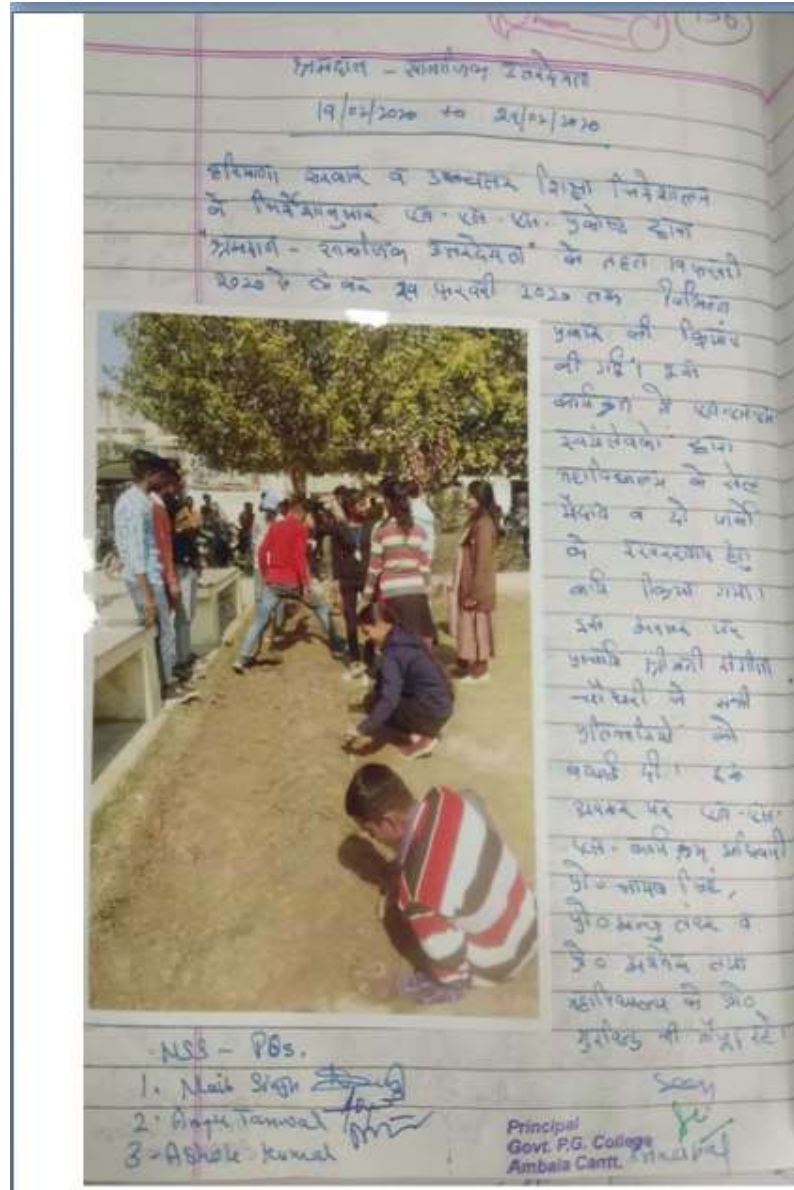 136
श्रमदान - सामाजिक उत्तरदेयता
19/02/2020 to 29/02/2020
हरियाणा सरकार व उच्चतर शिक्षा निदेशालय
के निर्देशानुसार एन.एस.एस. प्रकोष्ठ द्वारा
"श्रमदान - सामाजिक उत्तरदेयता" के तहत 19 फरवरी
2020 से लेकर 29 फरवरी 2020 तक विभिन्न
प्रकार की क्रियाएं
की गई। इस
कार्यक्रम में एन.एस.एस.
स्वयंसेवकों द्वारा
महाविद्यालय के खेल
मैदान व दो पार्कों
के रखरखाव हेतु
कार्य किया गया।
इस अवसर पर
प्राचार्या श्रीमती संगीता
चौधरी ने सभी
प्रतिभागियों को
बधाई दी। इस
अवसर पर एन.एस.
एस. कार्यक्रम अधिकारी
प्रो०
प्रो० अन्जु तंवर व
प्रो० अशोक तथा
महाविद्यालय के प्रो०
भी मौजूद रहे।
NSS - POs.
1. Singh
2. Anju Tanwal
3 - Ashok Kumal
Seen
Principal
Principal
Govt. P.G. College
Ambala Cantt.